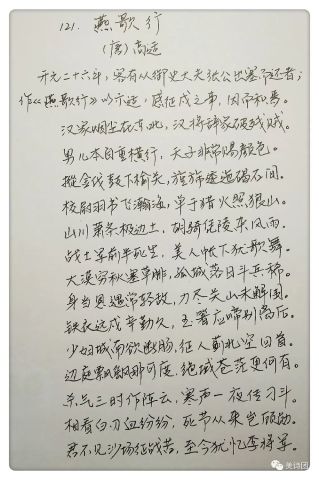 121. 燕歌行
(唐)高适
开元二十六年,客有从御史大夫张公出塞而还者;
作《燕歌行》以示适,感征戍之事,因而和焉。
汉家烟尘在东北,汉将辞家破残贼。
男儿本自重横行,天子非常赐颜色。
摐金伐鼓下榆关,旌旆逶迤碣石间。
校尉羽书飞瀚海,单于猎火照狼山。
山川萧条极边土,胡骑凭陵杂风雨。
战士军前半死生,美人帐下犹歌舞。
大漠穷秋塞草腓,孤城落日斗兵稀。
身当恩遇常轻敌,力尽关山未解围。
铁衣远戍辛勤久,玉箸应啼别离后。
少妇城南欲断肠,征人蓟北空回首。
边庭飘飖那可度,绝域苍茫更何有。
杀气三时作阵云,寒声一夜传刁斗。
相看白刃血纷纷,死节从来岂顾勋。
君不见沙场征战苦,至今犹忆李将军。
美诗团